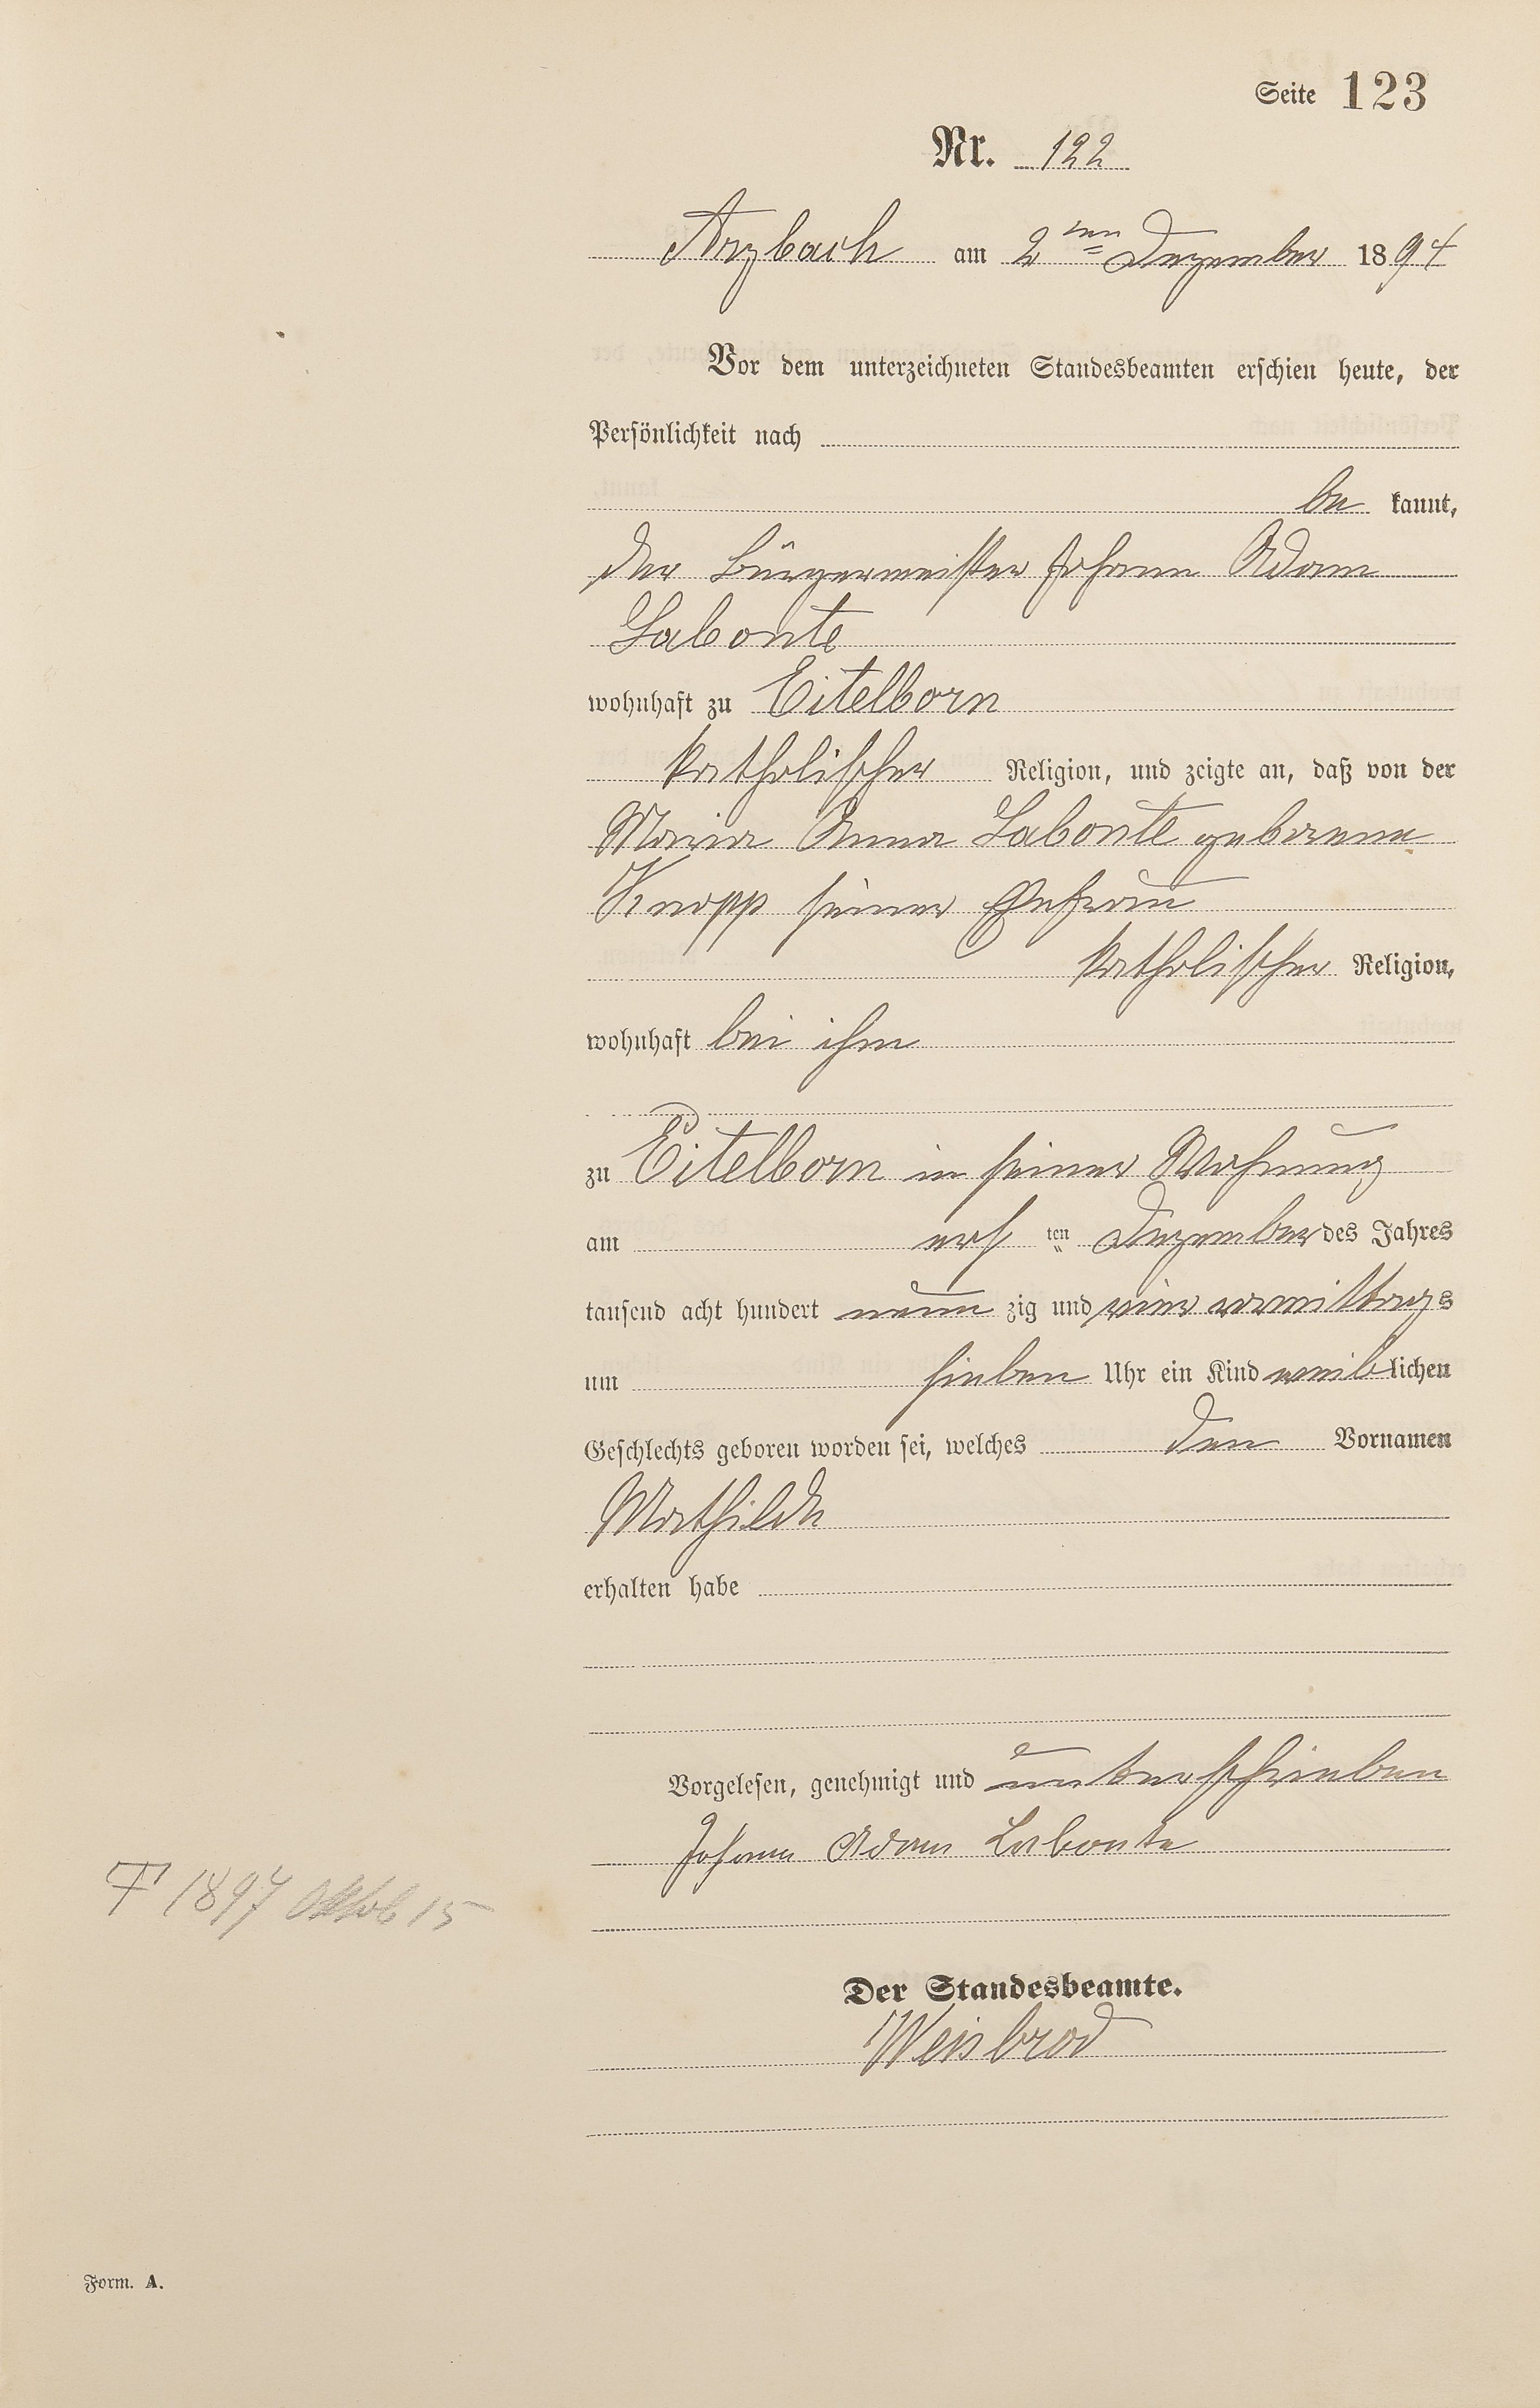 Seite 123
Nr. 122
Arzbach am 2ten Dezember 1894
Vor dem unterzeichneten Standesbeamten erschien heute, der
Persönlichkeit nach
be kannt,
der Bürgermeister Johann Adam
Labonte
wohnhaft zu Eitelborn
katholischer Religion, und zeigte an, daß von der
Maria Anna Labonte geborene
Knopp seiner Ehefrau
katholischer Religion,
wohnhaft bei ihm
zu Eitelborn in seiner Wohnung
am ersten Dezember des Jahres
tausend acht hundert neun zig und vier vormittags
um sieben Uhr ein Kind weiblichen
Geschlechts geboren worden sei, welches den Vornamen
Mathilde
erhalten habe
Vorgelesen, genehmigt und unterschrieben
Johann Adam Labonte
† 1897 Oktob 15
Der Standesbeamte.
Weisbrod
Form. A.